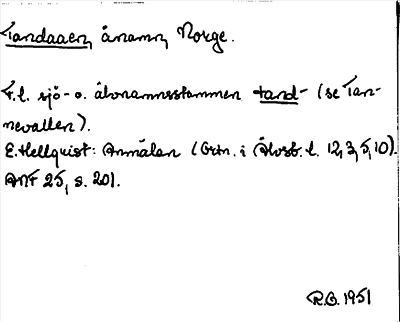 Tandaaen, ånamn, Norge.
F.l. sjö- o. älvnamnsstammen tand- (se Tan-
nevallen).
E. Hellquist: Anmälan (Ortn. i Älvsb. l. 12, 3, 5, 10).
ANF 25, s. 201.
R.G. 1951